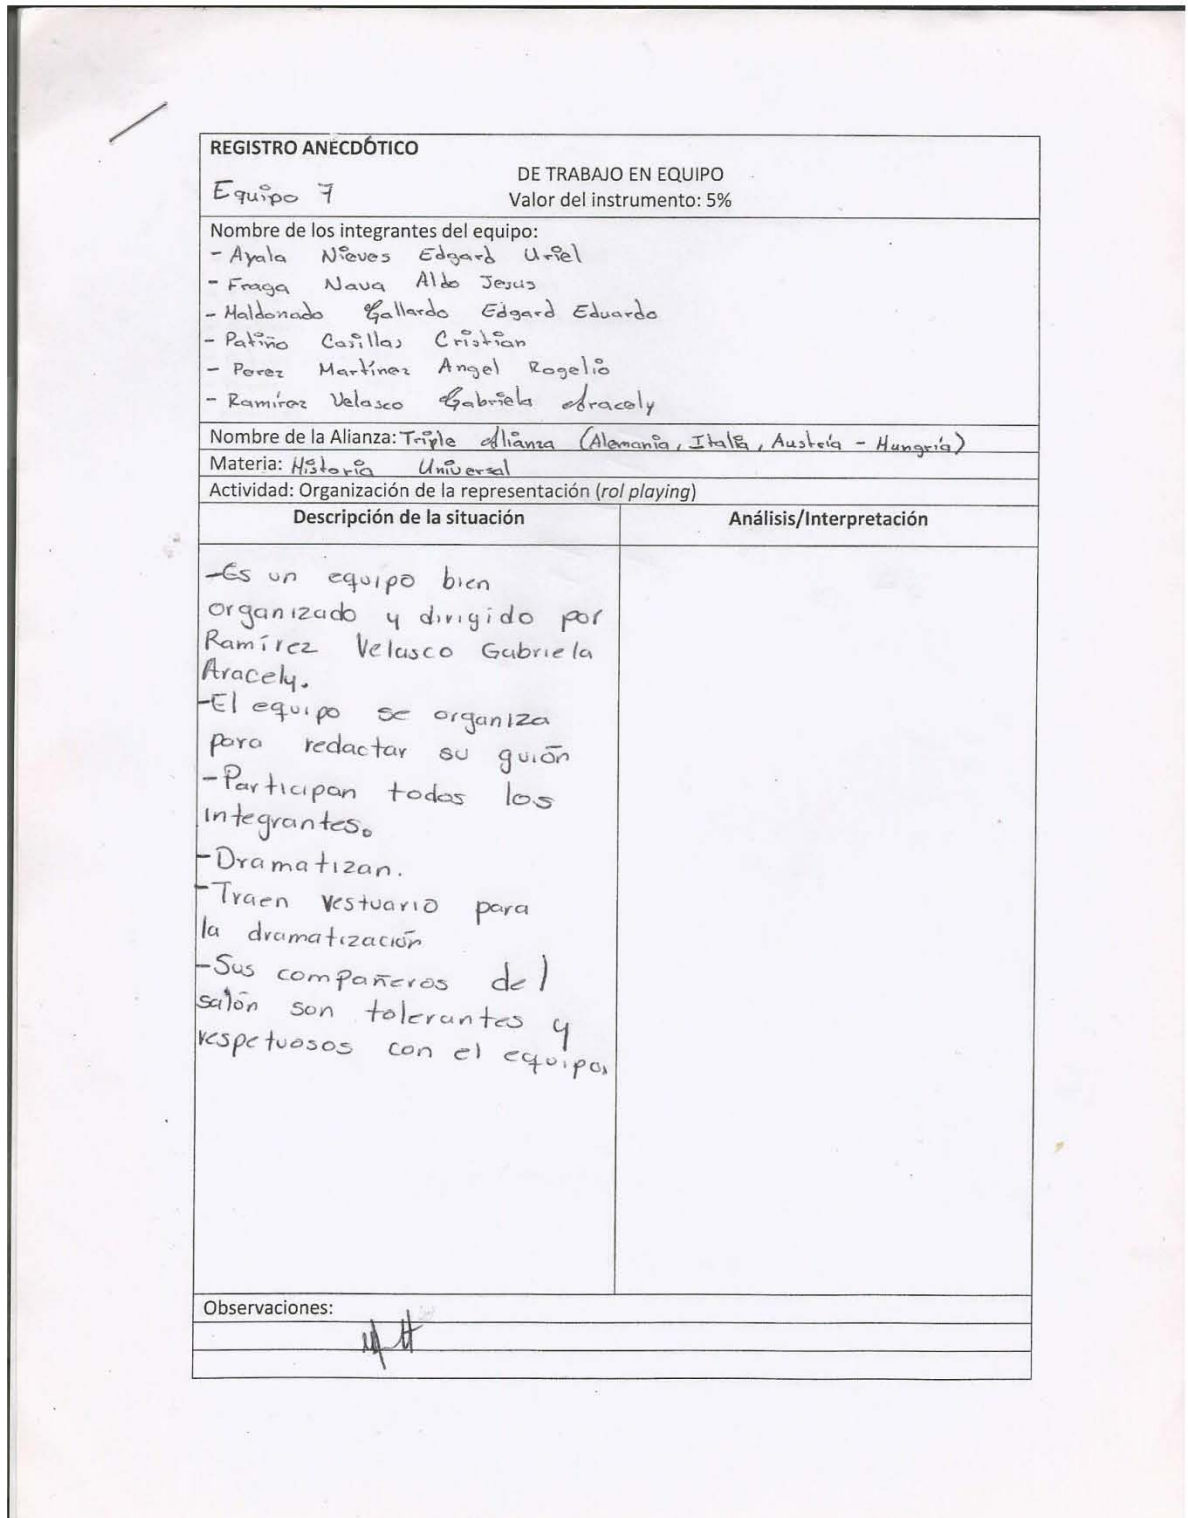 REGISTRO ANECDÓTICO
DE TRABAJO EN EQUIPO
Equipo 7
Valor del instrumento: 5%
Nombre de los integrantes del equipo:
- Ayala Nieves Edgard Uriel
- Fraga Nava Aldo Jesus
- Maldonado Gallardo Edgard Eduardo
- Patiño Casillas Cristian
- Perez Martínez Angel Rogelio
- Ramírez Velasco Gabriela Aracely
Nombre de la Alianza: Triple Alianza (Alemania, Italia, Austría - Hungría)
Materia: Historia Universal
Actividad: Organización de la representación (rol playing)
Descripción de la situación
Análisis/Interpretación
-Es un equipo bien
organizado y dirigido por
Ramírez Velasco Gabriela
Aracely.
-El equipo se organiza
para redactar su guión
-Participan todos los
integrantes.
-Dramatizan.
-Traen vestuario para
la dramatización
-Sus compañeros del
salón son tolerantes y
respetuosos con el equipo.
Observaciones: